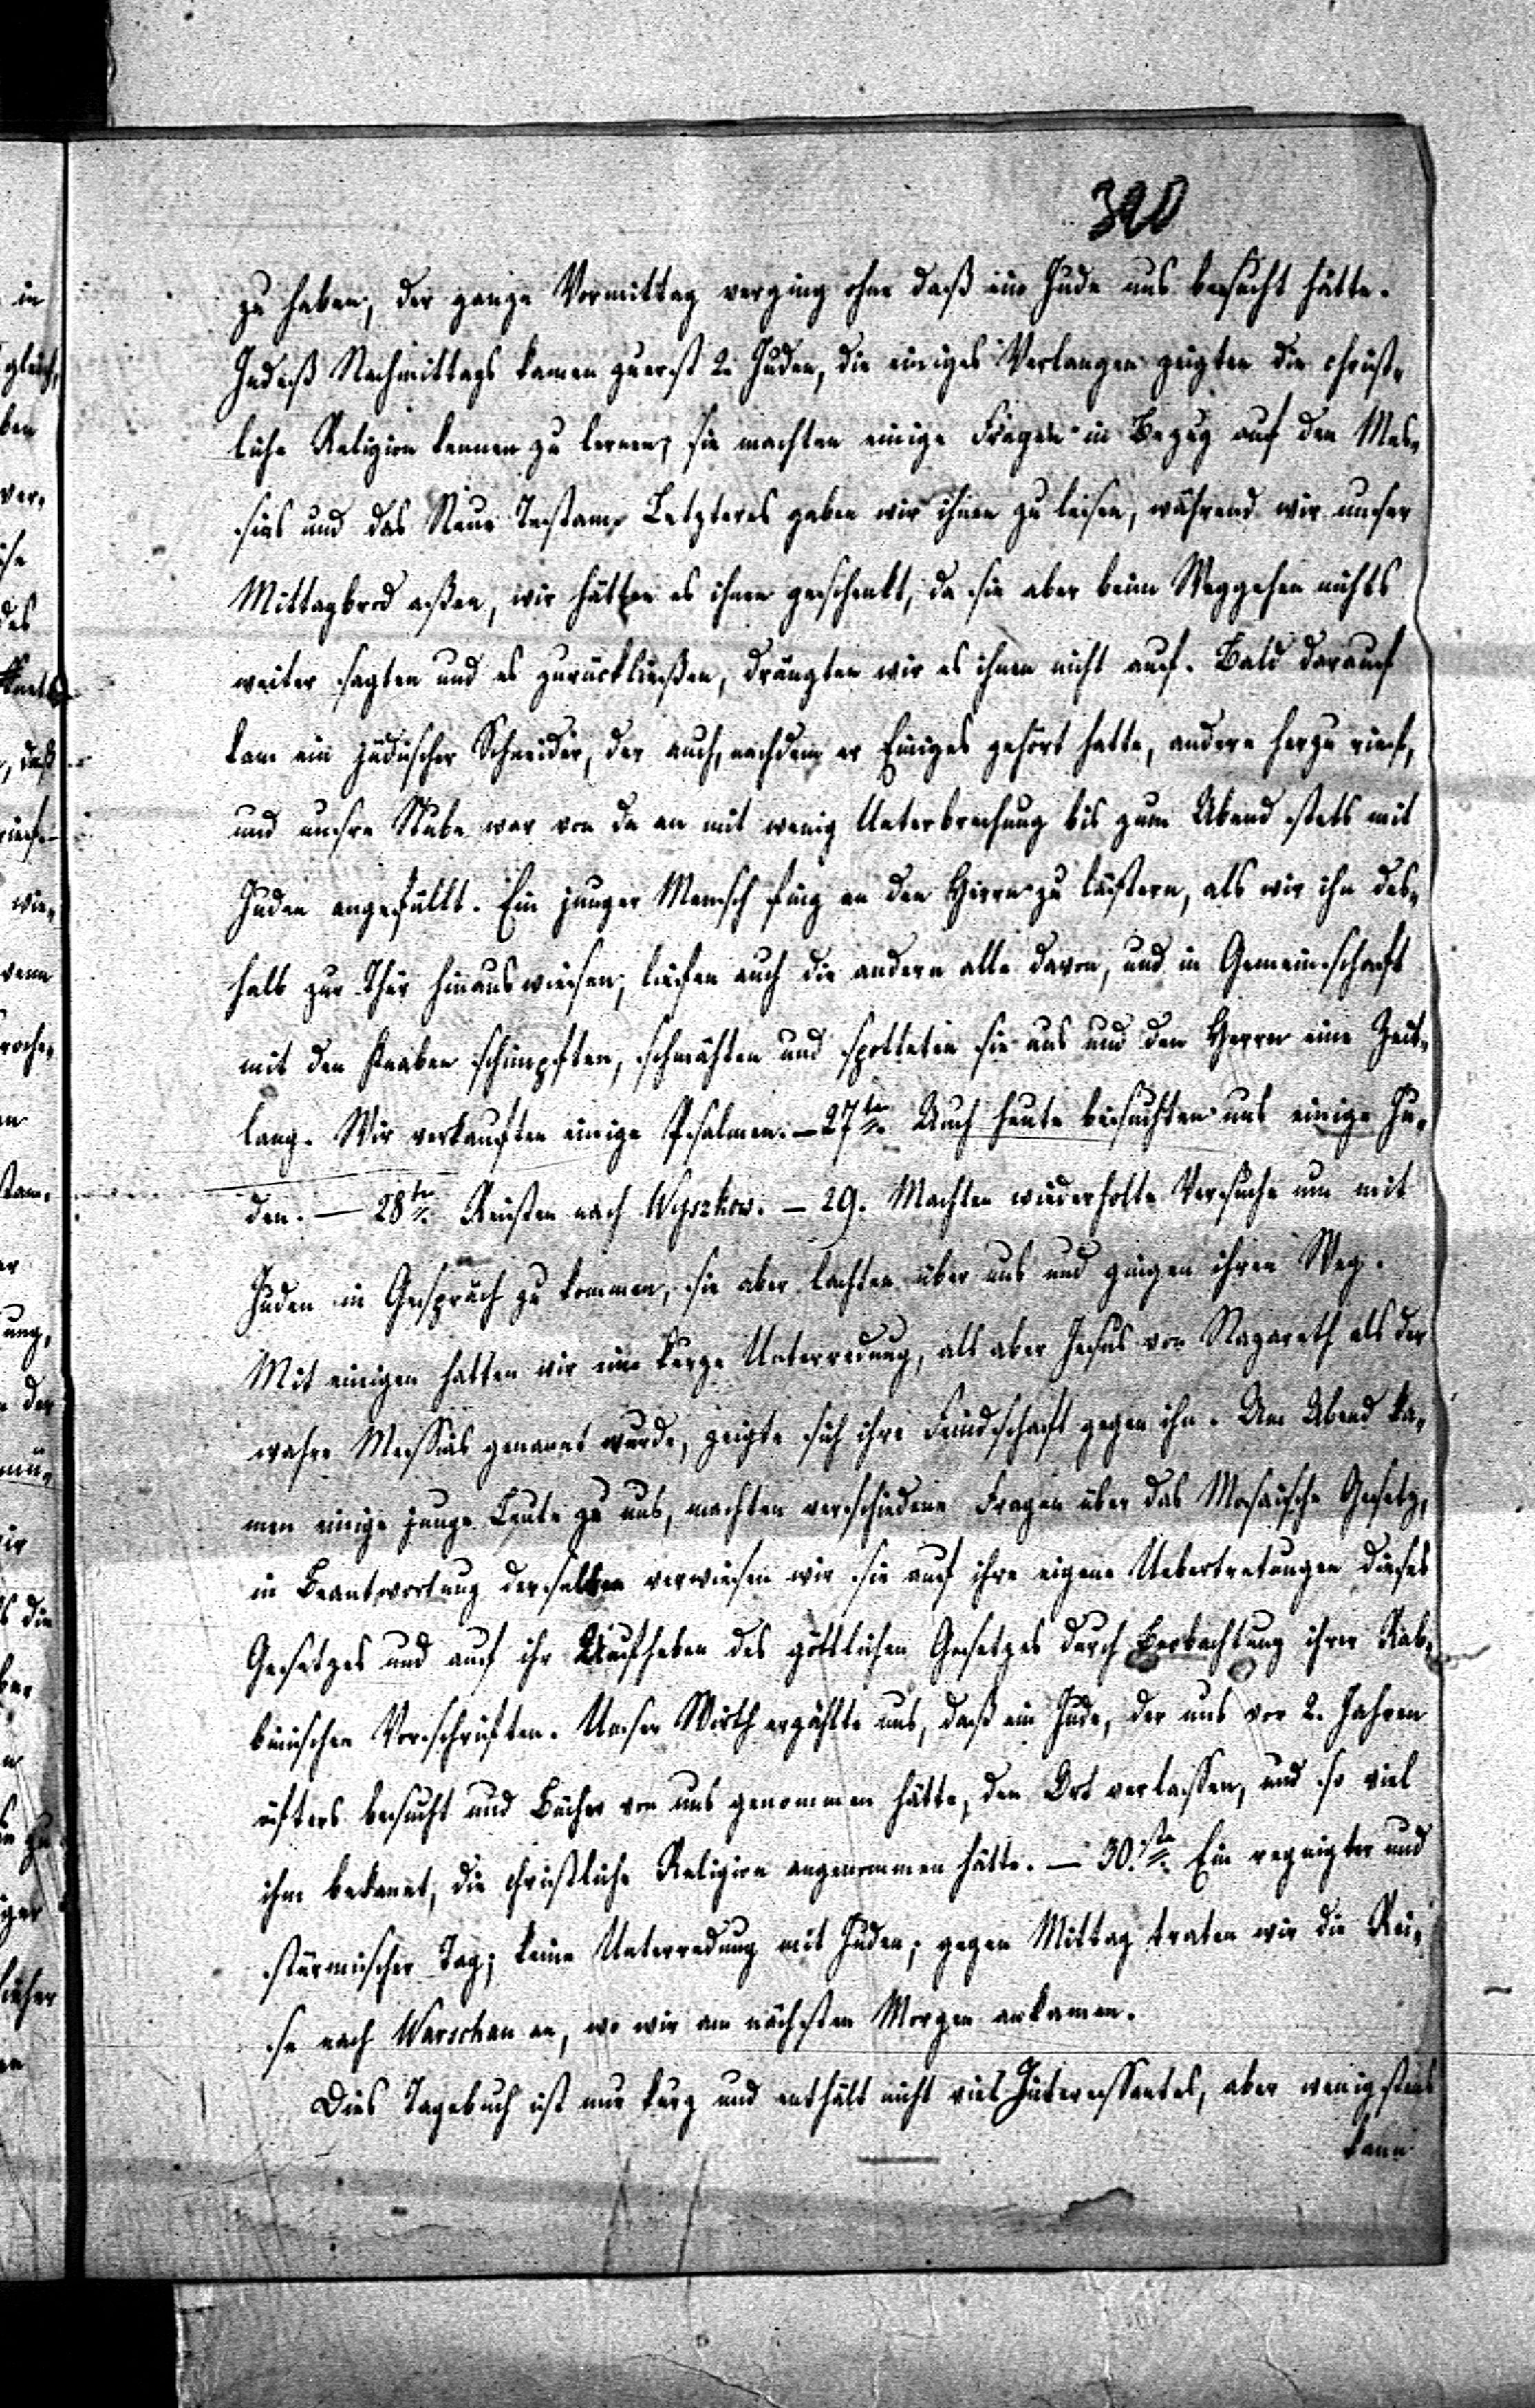 390
zu haben, der ganze Vormittag verging ohne daß ein Jude uns besucht hätte.
Indeß Nachmittags kamen zuerst 2. Juden, die einiges Verlangen zeigten die christ-
liche Religion kennen zu lernen, sie machten einige Fragen in Bezug auf den Mes-
sias und das Neue Testam. Letzteres gaben wir ihnen zu leisen, während wir unser
Mittagbrod aßen, wir hätten es ihnen geschenkt, da sie aber beim Weggehen nichts
weiter sagten und es zurückließen, drängten wir es ihnen nicht auf. Bald darauf
kam ein jüdischer Schneider, der auch, nachdem er Einiges gehört hatte, andere herzu rief,
und unsre Stube war von da an mit wenig Unterbrechung bis zum Abend stets mit
Juden angefüllt. Ein junger Mensch fing an den Herrn zu lästern, als wir ihn des-
halb zur Thür hinaus wiesen, liefen auch die andern alle davon, und in Gemeinschaft
mit den Knaben schimpften, schmähten und spotteten sie uns und den Herrn eine Zeit-
lang. Wir verkauften einige Psalmen. – 27te. Auch heute besuchten uns einige Ju-
den. – 28te. Reisten nach Wyszkow. – 29. Machten wiederholte Versuche um mit
Juden in Gespräch zu kommen, sie aber lachten über uns und gingen ihren Weg.
Mit einigen hatten wir eine kurze Unterredung, als aber Jesus von Nazareth als der
wahre Messias genannt wurde, zeigte sich ihre Feindschaft gegen ihn. Am Abend ka-
men einige junge Leute zu uns, machten verschiedene Fragen über das Mosaische Gesetz,
in Beantwortung derselben verwiesen wir sie auf ihre eigene Uebertretungen dieses
Gesetzes und auf ihr Aufheben des göttlichen Gesetzes durch Beobachtung ihrer Rab-
binischen Vorschriften. Unser Wirth erzählte uns, daß ein Jude, der uns vor 2. Jahren
öfters besucht und Bücher von uns genommen hätte, den Ort verlassen, und so viel
ihm bekannt, die christliche Religion angenommen hätte. – 30.ste. Ein regnigter und
stürmischer Tag; keine Unterredung mit Juden; gegen Mittag traten wir die Rei-
se nach Warschau an, wo wir am nächsten Morgen ankamen.
Dies Tagebuch ist nur kurz und enthält nicht viel Interessantes, aber wenigstens
kann